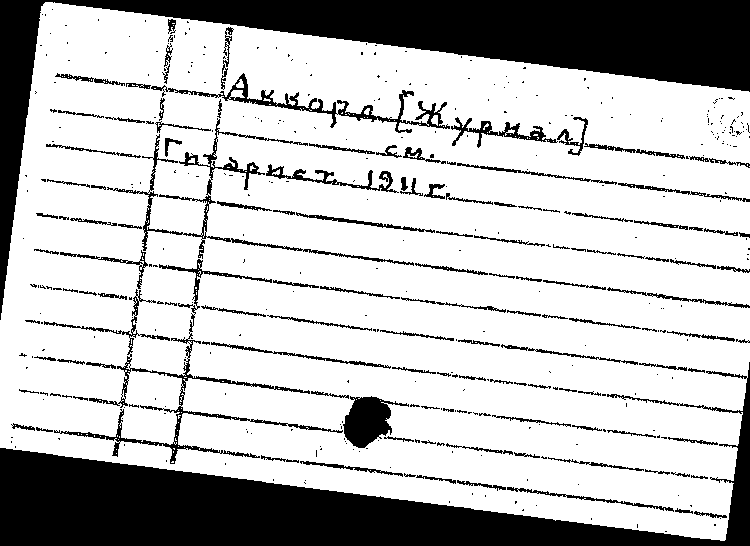 Аккорд [Журнал]
см.
Гитарист. 1911 г.